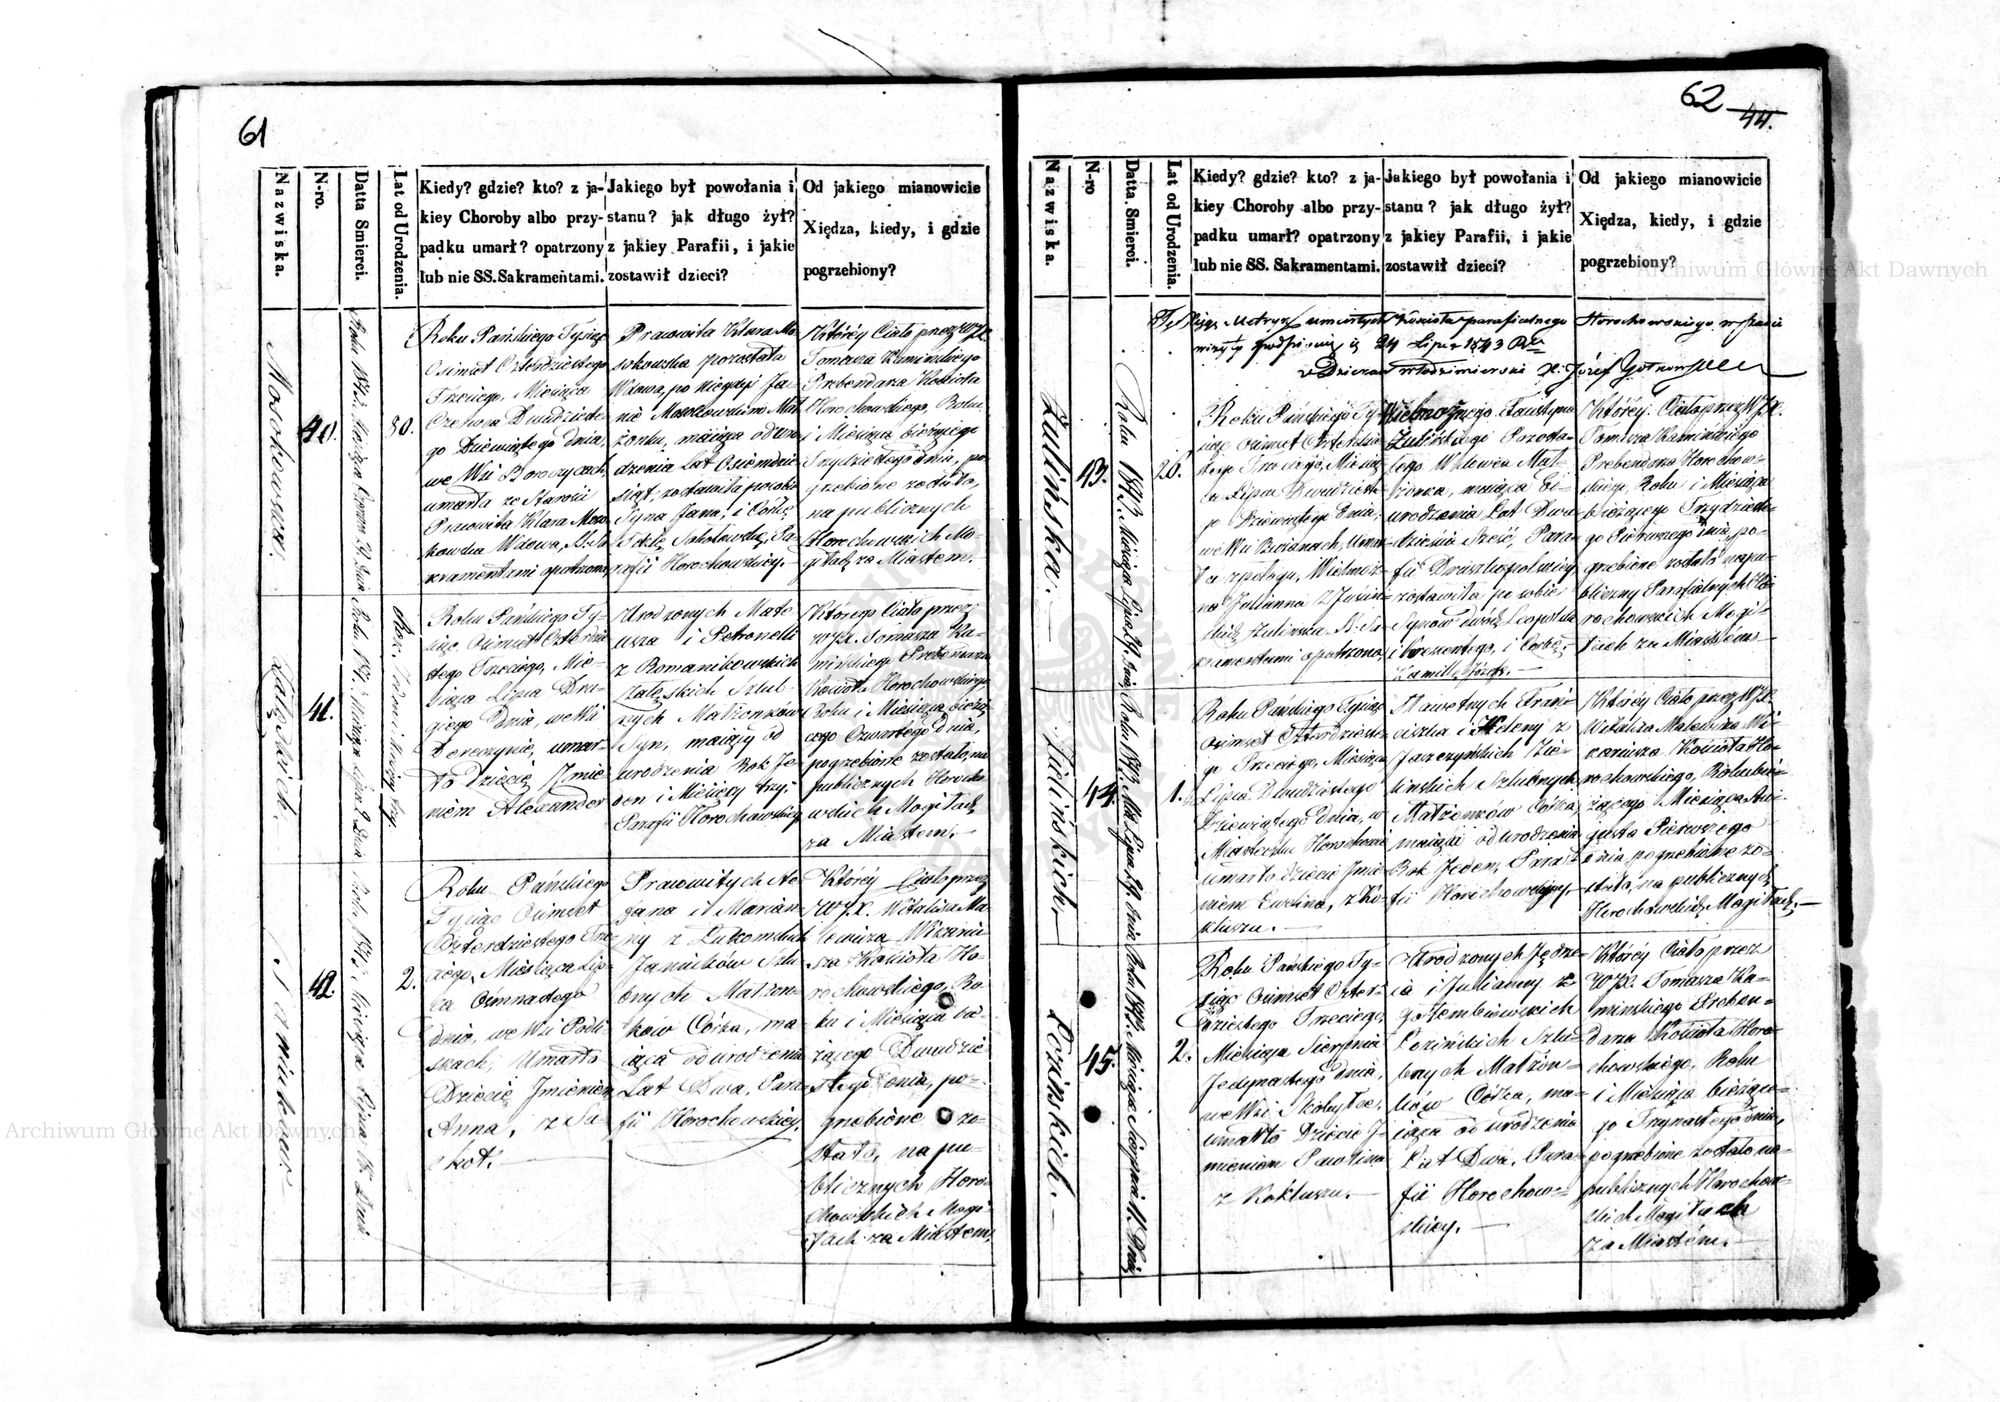 61
Nazwiska.
N-ro.
Datta Smierci.
Lat od Urodzenia.
Kiedy? gdzie? kto? z ja-
kiey Choroby albo przy-
padku umarł? opatrzony
lub nie SS. Sakramentami.
Jakiego był powołania i
stanu? jak długo żył?
z jakiey Parafii, i jakie
zostawił dzieci?
Od jakiego mianowicie
Xiędza, kiedy, i gdzie
pogrzebiony?
Mosokowska.
40.
Roku 1843. Miesiąca Czerwca 29 Dnia
80.
Roku Pańskiego Tysiąc
Ośmset Czterdziestego
Trzeciego, Miesiąca
Czerwca Dwudzieste-
go Dziewiątego Dnia,
we Wsi Boroczycach,
umarła ze Starości
Pracowita Klara Moso-
kowska Wdowa, SS. Sa-
kramentami opatrzona,
Pracowita Klara Mo-
sokowska pozostała
Wdowa, po niegdyś Ja-
nie Mosokowskim Mał-
żonku, maiąca od uro-
dzenia Lat Ośmdzie-
siąt, zostawiła po sobie
Syna Jana, i Córkę
Teklę Sokołowskę, Pa-
rafii Horochowskiey.
Któréy Ciało przez WJX.
Tomasza Kamińskiego
Prebendarza Kościoła
Horochowskiego, Roku
i Miesiąca bieżącego
Trzydziestego dnia, po-
grzebione zostało,
na publicznych
Horochowskich Mo-
giłach za Miastem.
Załęskich.
41.
Roku 1843. Miesiąca Lipca 2. Dnia
Rok Jeden i Miesięcy trzy.
Roku Pańskiego Ty-
siąc Ośmset Czterdzie-
stego Trzeciego, Mie-
siąca Lipca Dru-
giego Dnia, we Wsi
umar-
ło Dziecię Jmie-
niem Alexander
Urodzonych Mate-
usza i Petronelli
z Romanikowskich
Załęskich Szlub-
nych Małżonków
Syn, maiący od
urodzenia Rok Je-
den i Miesięcy trzy,
Parafii Horochowskiey
Którego Ciało przez
WJX. Tomasza Ka-
mińskiego Prebendarza
Kościoła Horochowskiego
Roku i Miesiąca bieżą-
cego Czwartego Dnia,
pogrzebione zostało, na
publicznych Horocho-
wskich Mogiłach
za Miastem.
Janników.
42.
Roku 1843. Miesiąca Lipca 18. Dnia
2.
Roku Pańskiego
Tysiąc Ośmset
Czterdziestego Trze-
ciego, Miesiąca Lip-
ca Ośmnastego
dnia, we Wsi Podli-
skach, Umarło
Dziecię Jmieniem
Anna, z Su-
chot.
Pracowitych
i Marian-
ny z Lutkomskich
Janników Szlu-
bnych Małżon-
ków Córka, ma-
iąca od urodzenia
Lat Dwa, Para-
fii Horochowskiey.
Któréy Ciało przez
WJX. Witalisa Ma-
lewicza Wikariu-
sza Kościoła Ho-
rochowskiego, Ro-
ku i Miesiąca bie-
żącego Dwudzie-
stego dnia, po-
grzebione zo-
stało, na pu-
blicznych Horo-
chowskich Mogi-
łach za Miastem,
62
44.
Nazwiska.
N-ro
Datta. Smierci.
Lat od Urodzenia.
Kiedy? gdzie? kto? z ja-
kiey Choroby albo przy-
padku umarł? opatrzony
lub nie SS. Sakramentami.
Jakiego był powołania i
stanu? jak długo żył?
z jakiey Parafii, i jakie
zostawił dzieci?
Od jakiego mianowicie
Xiędza, kiedy, i gdzie
pogrzebiony?
Metryk umarłych Kościoła parafialnego Horochowskiego
24 Lipca 1843 Ru
Dziekan Włodzimierski X. Józef
Żulińska.
43.
Roku 1843. Miesiąca Lipca 29. Dnia
26.
Roku Pańskiego Ty-
siąc Ośmset Czterdzie-
stego Trzeciego, Miesią-
ca Lipca Dwudzieste-
go Dziewiątego Dnia,
we Wsi Umar-
ła z połogu, Wielmoż-
na Julianna
Żulińska SS. Sa-
kramentami opatrzona,
Wielmożnego Faustyna
Żulińskiego Pozosta-
łego Wdowca Mał-
żonka, maiąca Od
urodzenia Lat Dwa-
dzieścia Sześć, Para-
fii Druszkopolskiey
zostawiła po sobie
Synów dwóch Leopolda
i Córkę,
Któréy Ciało przez WJX.
Tomasza Kamińskiego
Prebendarza Horochow-
skiego, Roku i Miesiąca
bieżącego Trzydzieste-
go Pierwszego dnia, po-
grzebione zostało na pu-
blicznych Parafialnych Ho-
rochowskich Mogi-
łach za Miastem
Zielińskich.
44.
Roku 1843. Mca Lipca 29. dnia
1.
Roku Pańskiego Tysiąc
Ośmset Czterdzieste-
go Trzeciego, Miesiąca
Lipca Dwudziestego
Dziewiątego Dnia, w
Miasteczku Horochowie
umarło dziecie Jmie-
niem Ewelina, z Ko-
kluszu.
Sławetnych Fran-
ciszka i Heleny z
Jaszczyńskich Zie-
lińskich Szlubnych
Małżonków Córka,
maiąca od urodzenia
Rok Jeden, Para-
fii Horochowskiey.
Któréy Ciało przez WJX.
Witalisa Malewicza Wi-
kariusza Kościoła Ho-
rochowskiego, Roku bie-
żącego Miesiąca Au-
gusta Pierwszego
dnia, pogrzebione zo-
stało, na publicznych
Horochowskich Mogiłach.
Łozińskich.
45.
Roku 1843. Miesiąca Sierpnia 11. Dnia
2.
Roku Pańskiego Ty-
siąc Ośmset Czter-
dziestego Trzeciego,
Miesiąca Sierpnia
Jedynastego dnia,
we Wsi Skobyłce,
umarło Dziecie J-
mieniem Paulina
z Kokluszu.
Urodzonych Jędrze-
ia i Julianny z
Gołembiowskich
Łozińskich Szlu-
bnych Małżon-
ków Córka, ma-
iąca od urodzenia
Lat Dwa, Para-
fii Horochow-
skiey.
Któréy Ciało przez
WJX. Tomasza Ka-
mińskiego Preben-
darza Kościoła Horo-
chowskiego, Roku
i Miesiąca bieżące-
go Trzynastego dnia,
pogrzebione zostało na-
publicznych Horochow-
skich Mogiłach
za Miastem.
Archiwum Główne Akt Dawnych
Archiwum Główne Akt Dawnych